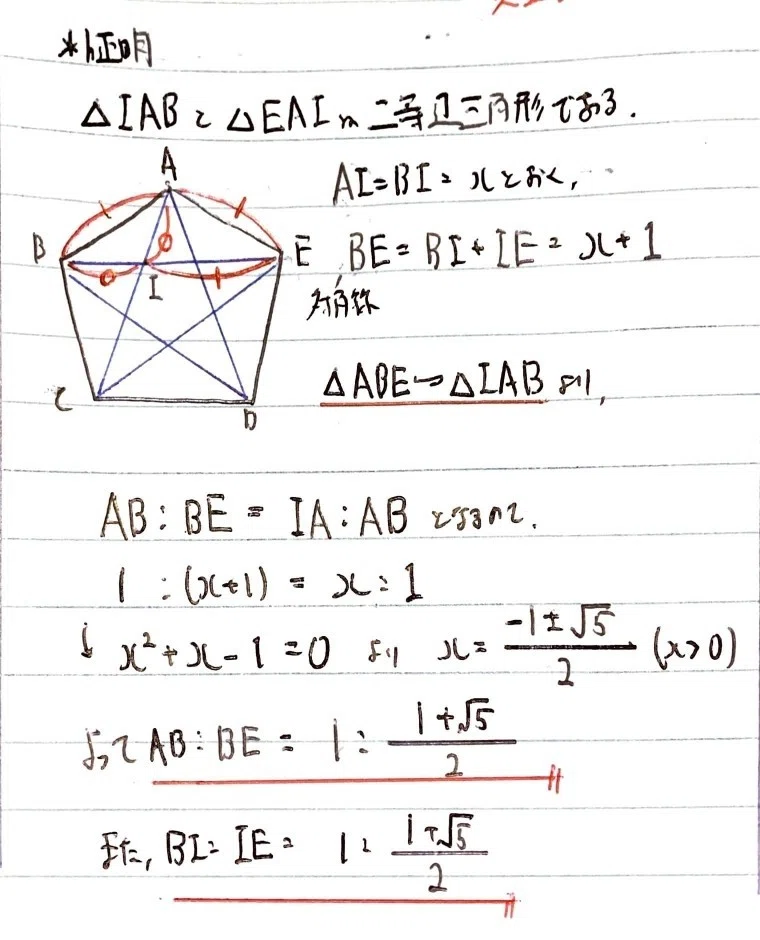 *証明
△IABと△EAIが二等辺三角形である.
A
B
E
I
C
D
AI=BI=xとおく,
BE=BI+IE=x+1
対角線
△ABE∽△IABより,
AB:BE=IA:ABとなるので,
1:(x+1)=x:1
↓ x²+x-1=0 より x=(-1±√5)/2 (x>0)
よって AB:BE=1:(1+√5)/2
また, BI:IE=1:(1+√5)/2